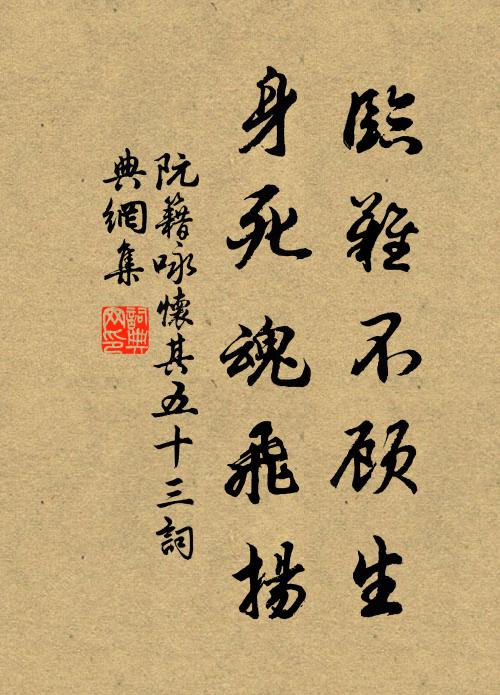 臨難不顾生
身死魂飛揚
阮籍咏懷其五十三詞
典網集
詞典
网印